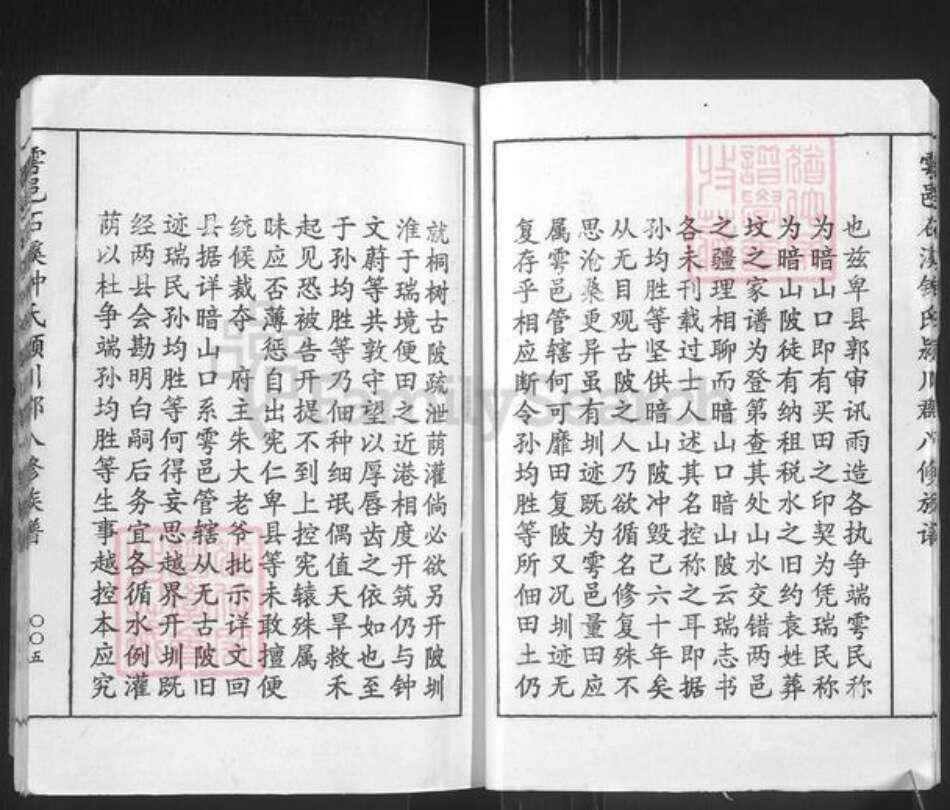 也兹卑县郭审讯雨造各执争端雩民称
为暗山口即有买田之印契为凭瑞民称
为暗山陂徒有纳租税水之旧约袁姓葬
坟之家谱为登第查其处山水交错两邑
之疆理相聊而暗山口暗山陂云瑞志书
各未刊载过士人述其名控称之耳即据
孙均胜等坚供暗山陂冲毁己六十年矣
从无目观古陂之人乃欲循名修复殊不
思沧桑更异虽有圳迹既为雩邑量田应
属雩邑管辖何可靡田复陂又况圳迹无
复存乎相应断令孙均胜等所佃田土仍
就桐树古陂疏泄荫灌倘必欲另开陂圳
淮于瑞境便田之近港相度开筑仍与钟
文蔚等共敦守望以厚唇齿之依如也至
于孙均胜等乃佃种细氓偶值天旱救禾
起见恐被告开提不到上控宪辕殊属
昧应否薄惩自出宪仁卑县等未敢擅便
统候裁夺 府主朱大老爷批示详文回
县据详暗山口系雩邑管辖从无古陂旧
迹瑞民孙均胜等何得妄思越界开圳既
经两县会勘明白嗣后务宜各循水例灌
荫以杜争端孙均胜等生事越控本应究
雩邑石溪钟氏颍川郡八修族谱
〇〇五
FamilySearch